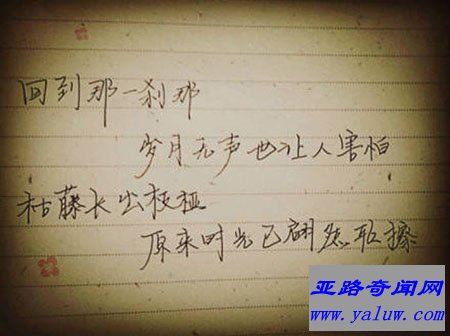 回到那一刹那
岁月无声也让人害怕
枯藤长出枝桠
原来时光已翩然轻擦
亚路奇闻网
www.yaluw.com